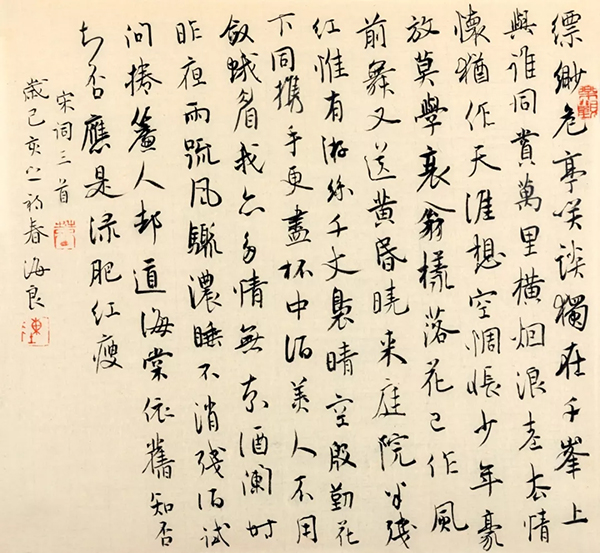 缥缈危亭笑谈獨在千峯上
與谁同賞萬里橫烟浪老去情
懷猶作天涯想空惆悵少年豪
放莫學衰翁樣落花已作風
前舞又送黄昏曉来庭院半残
红惟有游絲千丈裊晴空殷勤花
下同攜手更盡杯中酒美人不用
敛蛾眉我亦多情無奈酒闌时
昨夜雨疏风驟濃睡不消残酒试
问捲簾人却道海棠依舊知否
知否應是绿肥红瘦
宋词三首
歲己亥之初春海良